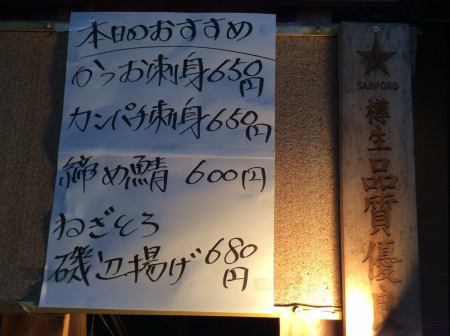 本日のおすすめ
かつお刺身650円
カンパチ刺身650円
締め鯖 600円
ねぎとろ
磯辺揚げ680円
SAPPORO
樽生
品質優